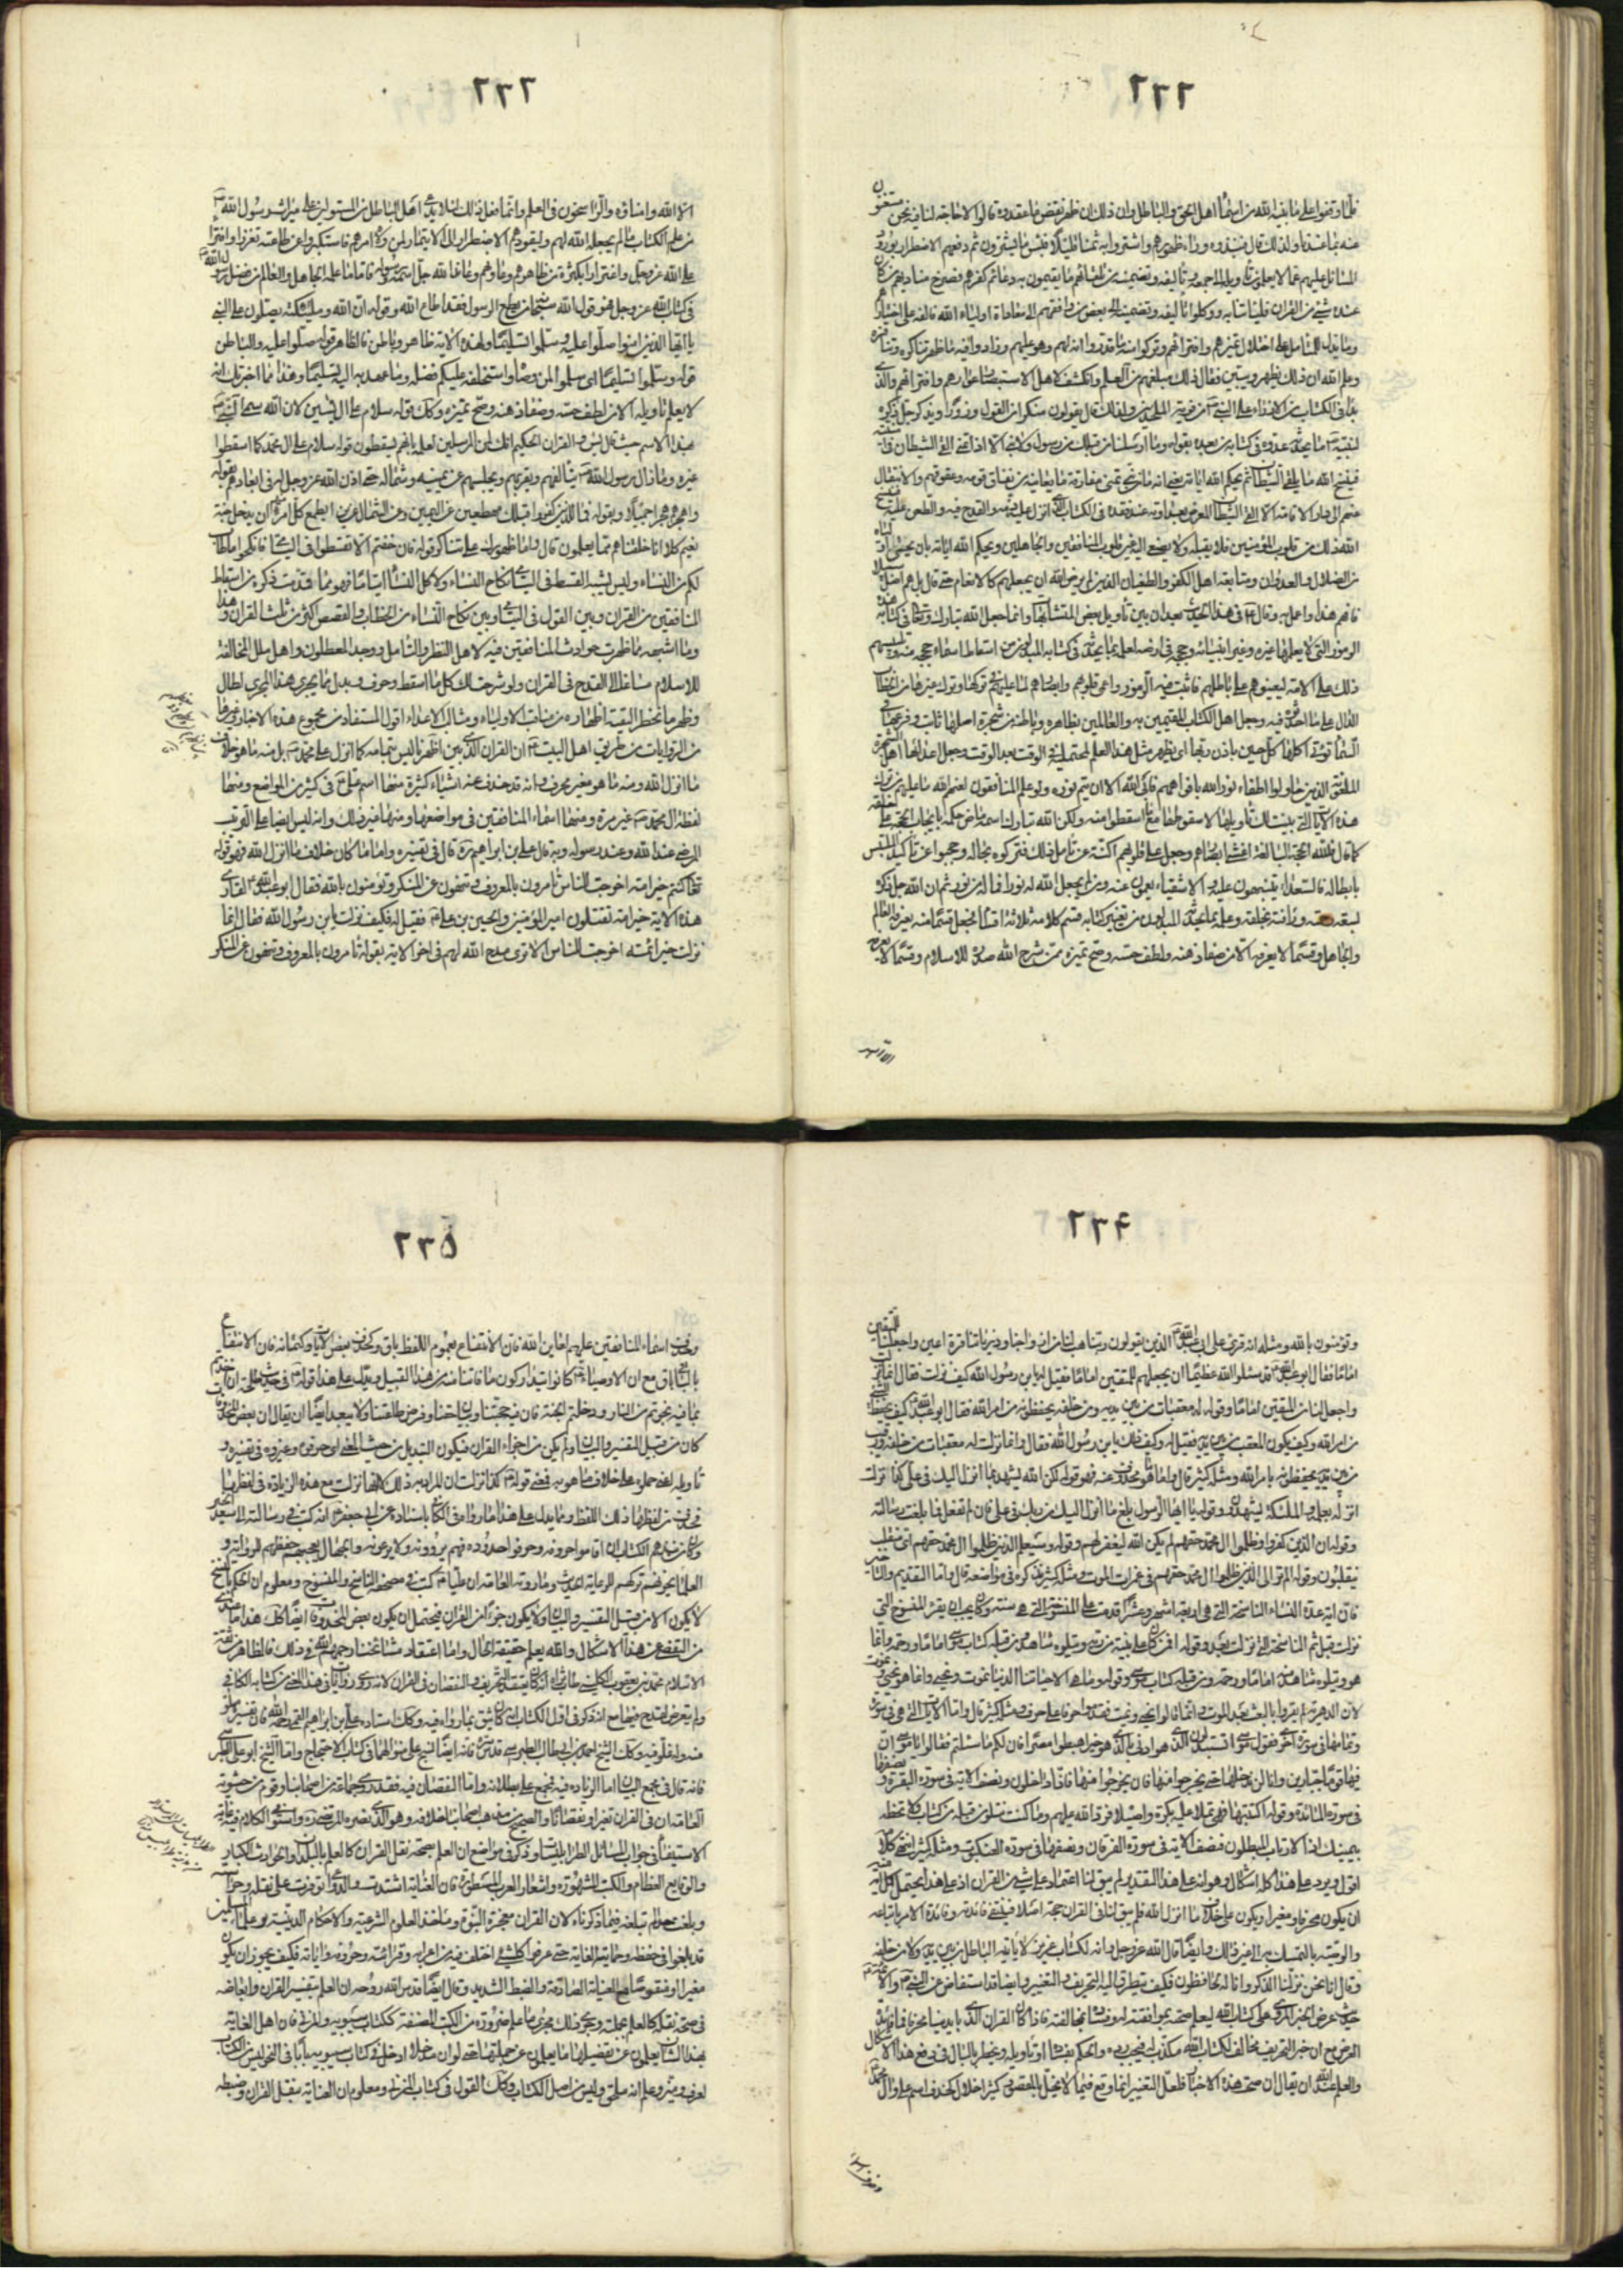 ٢٣٢
فلما وقفوا على ما بينه الله من اسماء اهل الحق والباطل وان ذلك ان ظهر نقض ما عقدوه قالوا لا حاجة لنا فيه نحن مستغنون
عنه بما عندنا ولذلك قال فنبذوه وراء ظهورهم واشتروا به ثمنا قليلا فبئس ما يشترون ثم دفعهم الاضطرار بورود
المسائل عليهم عما لا يعلمون تأويله الى جمعه وتأليفه وتضمينه من تلقائهم ما يقيمون به دعائم كفرهم فصرخ مناديهم من كان
عنده شيء من القران فليأتنا به ووكلوا تأليفه ونظمه الى بعض من وافقهم الى معاداة اولياء الله فالفه على اختيارهم
وما يدل للمتأمل على اختلال تمييزهم وافترائهم وتركوا منه ما قدروا انه لهم وهو عليهم وزادوا فيه ما ظهر تناكره وتنافره
وعلم الله ان ذلك يظهر ويبين فقال ذلك مبلغهم من العلم وانكشف لاهل الاستبصار عوارهم وافتراؤهم والذي
بدا في الكتاب من الازراء على النبي من فرية الملحدين ولذلك قال يقولون منكرا من القول وزورا ويذكر جل ذكره
لنبيه ما يحدثه عدوه في كتابه من بعده بقوله وما ارسلنا من قبلك من رسول ولا نبي الا اذا تمنى القى الشيطان في امنيته
فينسخ الله ما يلقي الشيطان ثم يحكم الله اياته يعني انه ما من نبي تمنى مفارقة ما يعانيه من نفاق قومه وعقوقهم والانتقال
عنهم الى دار الاقامة الا القى الشيطان المعرض بعداوته عند فقده في الكتاب الذي انزل عليه ذمه والقدح فيه والطعن عليه فينسخ
الله ذلك من قلوب المؤمنين فلا تقبله ولا يصغي اليه غير قلوب المنافقين والجاهلين ويحكم الله اياته بان يحمي اولياءه
من الضلال والعدوان ومتابعة اهل الكفر والطغيان الذين لم يرض الله ان يجعلهم كالانعام حتى قال بل هم اضل سبيلا
فافهم هذا واعمل به وقال في هذا الحديث بعد ان بين تأويل بعض المتشابهات وانما جعل الله تبارك وتعالى في كتابه هذه
الرموز التي لا يعلمها غيره وغير انبيائه وحججه في ارضه لعلمه بما يحدثه في كتابه المبدلون من اسقاط اسماء حججه منه وتلبيسهم
ذلك على الامة ليعينوهم على باطلهم فاثبت فيه الرموز واعمى قلوبهم وابصارهم لما عليهم في تركها وترك غيرها من الخطاب
الدال على ما احدثوه فيه وجعل اهل الكتاب المقيمين به والعالمين بظاهره وباطنه من شجرة اصلها ثابت وفرعها في
السماء تؤتي اكلها كل حين باذن ربها اي يظهر مثل هذا العلم لمحتمليه في الوقت بعد الوقت وجعل اعداءها اهل الشجرة
الملعونة الذين حاولوا اطفاء نور الله بافواههم فابى الله الا ان يتم نوره ولو علم المنافقون لعنهم الله ما عليهم من ترك
هذه الايات التي بينت لك تأويلها لاسقطوها مع ما اسقطوا منه ولكن الله تبارك اسمه ماض حكمه بايجاب الحجة على خلقه
كما قال فلله الحجة البالغة اغشى ابصارهم وجعل على قلوبهم اكنة عن تأمل ذلك فتركوه بحاله وحجبوا عن تأكيد الملتبس
بابطاله فالسعداء يتنبهون عليه والاشقياء يعمون عنه ومن لم يجعل الله له نورا فما له من نور ثم ان الله جل ذكره
لسعة رحمته ورأفته بخلقه وعلمه بما يحدثه المبدلون من تغيير كتابه قسم كلامه ثلاثة اقسام فجعل قسما منه يعرفه العالم
والجاهل وقسما لا يعرفه الا من صفا ذهنه ولطف حسه وصح تمييزه ممن شرح الله صدره للاسلام وقسما لا يعرفه
٢٣٣
الا الله وامناؤه والراسخون في العلم وانما فعل ذلك لئلا يدعي اهل الباطل من المستولين على ميراث رسول الله
من علم الكتاب ما لم يجعله الله لهم وليقودهم الاضطرار الى الايتمار لمن ولاه امرهم فاستكبروا عن طاعته تعززا وافتراء
على الله عز وجل واغترارا بكثرة من ظاهرهم وعاونهم وعاند الله جل اسمه ورسوله فاما ما علمه الجاهل والعالم من فضل رسول الله
في كتاب الله عز وجل فهو قول الله سبحانه من يطع الرسول فقد اطاع الله وقوله ان الله وملائكته يصلون على النبي
يا ايها الذين امنوا صلوا عليه وسلموا تسليما ولهذه الاية ظاهر وباطن فالظاهر قوله صلوا عليه والباطن
قوله وسلموا تسليما اي سلموا لمن وصاه واستخلفه عليكم فضله وما عهد به اليه تسليما وهذا مما اخبرتك انه
لا يعلم تأويله الا من لطف حسه وصفا ذهنه وصح تمييزه وكذلك قوله سلام على ال يسين لان الله سمى النبي
بهذا الاسم حيث قال يس والقران الحكيم انك لمن المرسلين لعلمه بانهم يسقطون قوله سلام على ال محمد كما اسقطوا
غيره وما زال رسول الله يتألفهم ويقربهم ويجلسهم عن يمينه وشماله حتى اذن الله عز وجل له في ابعادهم بقوله
واهجرهم هجرا جميلا وبقوله فما للذين كفروا قبلك مهطعين عن اليمين وعن الشمال عزين ايطمع كل امرئ منهم ان يدخل جنة
نعيم كلا انا خلقناهم مما يعلمون قال واما ظهورك على تناكر قوله فان خفتم الا تقسطوا في اليتامى فانكحوا ما طاب
لكم من النساء وليس يشبه القسط في اليتامى نكاح النساء ولا كل النساء ايتاما فهو مما قدمت ذكره من اسقاط
المنافقين من القران وبين القول في اليتامى وبين نكاح النساء من الخطاب والقصص اكثر من ثلث القران وهذا
وما اشبهه مما ظهرت حوادث المنافقين فيه لاهل النظر والتأمل ووجد المعطلون واهل الملل المخالفة
للاسلام مساغا الى القدح في القران ولو شرحت لك كل ما اسقط وحرف وبدل مما يجري هذا المجرى لطال
وظهر ما تحظر التقية اظهاره من مناقب الاولياء ومثالب الاعداء اقول المستفاد من مجموع هذه الاخبار وغيرها
من الروايات من طريق اهل البيت ان القران الذي بين اظهرنا ليس بتمامه كما انزل على محمد بل منه ما هو خلاف
ما انزل الله ومنه ما هو مغير محرف وانه قد حذف عنه اشياء كثيرة منها اسم علي في كثير من المواضع ومنها
لفظة ال محمد غير مرة ومنها اسماء المنافقين في مواضعها ومنها غير ذلك وانه ليس ايضا على الترتيب
المرضي عند الله وعند رسوله وبه قال علي بن ابراهيم ره قال في تفسيره واما ما كان خلاف ما انزل الله فهو قوله
تعالى كنتم خير امة اخرجت للناس تأمرون بالمعروف وتنهون عن المنكر وتؤمنون بالله فقال ابو عبد الله لقارئ
هذه الاية خير امة تقتلون امير المؤمنين والحسين بن علي فقيل له فكيف نزلت يابن رسول الله فقال انما
نزلت خير ائمة اخرجت للناس الا ترى مدح الله لهم في اخر الاية بقوله تأمرون بالمعروف وتنهون عن المنكر
٢٣۴
وتؤمنون بالله ومثله انه قرئ على ابي عبد الله الذين يقولون ربنا هب لنا من ازواجنا وذرياتنا قرة اعين واجعلنا للمتقين
اماما فقال ابو عبد الله لقد سئلوا الله عظيما ان يجعلهم للمتقين اماما فقيل له يابن رسول الله كيف نزلت فقال انما نزلت
واجعل لنا من المتقين اماما وقوله له معقبات من بين يديه ومن خلفه يحفظونه من امر الله فقال ابو عبد الله كيف يحفظ الشيء
من امر الله وكيف يكون المعقب من بين يديه فقيل له وكيف ذلك يابن رسول الله فقال انما نزلت له معقبات من خلفه ورقيب
من بين يديه يحفظونه بامر الله ومثله كثير قال واما ما هو محذوف عنه فهو قوله لكن الله يشهد بما انزل اليك في علي كذا نزلت
انزله بعلمه والملئكة يشهدون وقوله يا ايها الرسول بلغ ما انزل اليك من ربك في علي فان لم تفعل فما بلغت رسالته
وقوله ان الذين كفروا وظلموا ال محمد حقهم لم يكن الله ليغفر لهم وقوله وسيعلم الذين ظلموا ال محمد حقهم اي منقلب
ينقلبون وقوله ولو ترى الذين ظلموا ال محمد حقهم في غمرات الموت ومثله كثير نذكره في مواضعه قال واما التقديم والتأخير
فان اية عدة النساء الناسخة التي هي اربعة اشهر وعشرا قدمت على المنسوخة التي هي سنة وكان يجب ان يقرأ المنسوخة التي
نزلت قبل ثم الناسخة التي نزلت بعد وقوله افمن كان على بينة من ربه ويتلوه شاهد منه ومن قبله كتاب موسى اماما ورحمة وانما
هو ويتلوه شاهد منه اماما ورحمة ومن قبله كتاب موسى وقوله وما هي الا حياتنا الدنيا نموت ونحيى وانما هو نحيى ونموت
لان الدهرية لم يقروا بالبعث بعد الموت وانما قالوا نحيى ونموت فقدموا حرفا على حرف ومثله كثير قال واما الايات التي هي في سورة
وتمامها في سورة اخرى فقول موسى اتستبدلون الذي هو ادنى بالذي هو خير اهبطوا مصرا فان لكم ما سئلتم فقالوا يا موسى ان
فيها قوما جبارين وانا لن ندخلها حتى يخرجوا منها فان يخرجوا منها فانا داخلون ونصف الاية في سورة البقرة ونصفها
في سورة المائدة وقوله اكتتبها فهي تملى عليه بكرة واصيلا فرد الله عليهم وما كنت تتلو من قبله من كتاب ولا تخطه
بيمينك اذا لارتاب المبطلون فنصف الاية في سورة الفرقان ونصفها في سورة العنكبوت ومثله كثير انتهى كلامه
اقول ويرد على هذا كله اشكال وهو انه على هذا التقدير لم يبق لنا اعتماد على شيء من القران اذ على هذا يحتمل كل اية منه
ان يكون محرفا ومغيرا ويكون على خلاف ما انزل الله فلم يبق لنا في القران حجة اصلا فينتفي فائدته وفائدة الامر باتباعه
والوصية بالتمسك به الى غير ذلك وايضا قال الله عز وجل وانه لكتاب عزيز لا يأتيه الباطل من بين يديه ولا من خلفه
وقال انا نحن نزلنا الذكر وانا له لحافظون فكيف يتطرق اليه التحريف والتغيير وايضا قد استفاض عن النبي والائمة
حديث عرض الخبر المروي على كتاب الله ليعلم صحته بموافقته له وفساده بمخالفته فاذا كان القران الذي بايدينا محرفا فما فائدة
العرض مع ان خبر التحريف مخالف لكتاب الله مكذب له فيجب رده والحكم بفساده او تأويله ويخطر بالبال في دفع هذا الاشكال
والعلم عند الله ان يقال ان صحت هذه الاخبار فلعل التغيير انما وقع فيما لا يخل بالمقصود كثير اخلال كحذف اسم علي وال محمد
٢٣۵
وحذف اسماء المنافقين عليهم لعاين الله فان الانتفاع بعموم اللفظ باق وكحذف بعض الايات وكتمانه فان الانتفاع
بالباقي باق مع ان الاوصياء كانوا يتداركون ما فاتنا منه من هذا القبيل ويدل على هذا قوله في حديث طلحة ان اخذتم
بما فيه نجوتم من النار ودخلتم الجنة فان فيه حجتنا وبيان حقنا وفرض طاعتنا ولا يبعد ايضا ان يقال ان بعض المحذوفات
كان من قبيل التفسير والبيان ولم يكن من اجزاء القران فيكون التبديل من حيث المعنى اي حرفوه وغيروه في تفسيره و
تأويله اعني حملوه على خلاف ما هو به فمعنى قوله كذا نزلت ان المراد به ذلك لا انها نزلت مع هذه الزيادة في لفظها
فحذف من لفظها ذلك اللفظ ومما يدل على هذا ما رواه في الكافي باسناده عن ابي جعفر انه كتب في رسالته الى سعد الخير
وكان من نبذهم الكتاب ان اقاموا حروفه وحرفوا حدوده فهم يروونه ولا يرعونه والجهال يعجبهم حفظهم للرواية و
العلماء يحزنهم تركهم للرعاية الحديث وما روته العامة ان عليا كتب في مصحفه الناسخ والمنسوخ ومعلوم ان الحكم بالنسخ
لا يكون الا من قبيل التفسير والبيان ولا يكون جزءا من القران فيحتمل ان يكون بعض المحذوفات ايضا كذلك هذا ما عندي
من التفصي عن هذا الاشكال والله يعلم حقيقة الحال واما اعتقاد مشائخنا رحمهم الله في ذلك فالظاهر من ثقة
الاسلام محمد بن يعقوب الكليني طاب ثراه انه كان يعتقد التحريف والنقصان في القران لانه روى روايات في هذا المعنى في كتابه الكافي
ولم يتعرض لقدح فيها مع انه ذكر في اول الكتاب انه كان يثق بما رواه فيه وكذلك استاده علي بن ابراهيم القمي رحمه الله فان تفسيره مملو
منه وله غلو فيه وكذلك الشيخ احمد بن ابي طالب الطبرسي قدس سره فانه ايضا نسج على منوالهما في كتاب الاحتجاج واما الشيخ ابو علي الطبرسي
فانه قال في مجمع البيان اما الزيادة فيه فمجمع على بطلانه واما النقصان فيه فقد روى جماعة من اصحابنا وقوم من حشوية
العامة ان في القران تغييرا ونقصانا والصحيح من مذهب اصحابنا خلافه وهو الذي نصره المرتضى ره واستوفى الكلام فيه غاية
الاستيفاء في جواب المسائل الطرابلسيات وذكر في مواضع ان العلم بصحة نقل القران كالعلم بالبلدان والحوادث الكبار
والوقايع العظام والكتب المشهورة واشعار العرب المسطورة فان العناية اشتدت والدواعي توفرت على نقله وحراسته
وبلغت حدا لم تبلغه فيما ذكرناه لان القران معجزة النبوة ومأخذ العلوم الشرعية والاحكام الدينية وعلماء المسلمين
قد بلغوا في حفظه وحمايته الغاية حتى عرفوا كل شيء اختلف فيه من اعرابه وقراءته وحروفه واياته فكيف يجوز ان يكون
مغيرا او منقوصا مع العناية الصادقة والضبط الشديد وقال ايضا قدس الله روحه ان العلم بتفسير القران وابعاضه
في صحة نقله كالعلم بجملته وجرى ذلك مجرى ما علم ضرورة من الكتب المصنفة ككتاب سيبويه والمزني فان اهل العناية
بهذا الشأن يعلمون من تفصيلها ما يعلمون من جملتها حتى لو ان مدخلا ادخل في كتاب سيبويه بابا في النحو ليس من الكتاب
لعرف وميز وعلم انه ملحق وليس من اصل الكتاب وكذلك القول في كتاب المزني ومعلوم ان العناية بنقل القران وضبطه